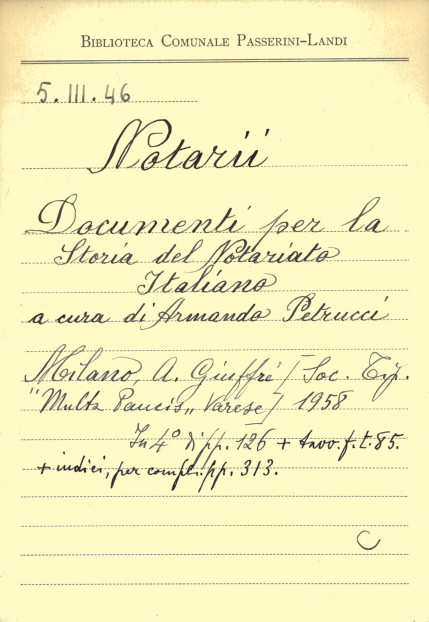 BIBLIOTECA COMUNALE PASSERINI-LANDI
5. III. 46
Notarii
Documenti per la
Storia del Notariato
Italiano
a cura di Armando Petrucci
Milano, A. Giuffré [Soc. Tip.
"Multa Paucis„ Varese] 1958
In 4° di pp. 126 + tavv. f. t. 85.
+ indici, per compl. pp. 313.
C